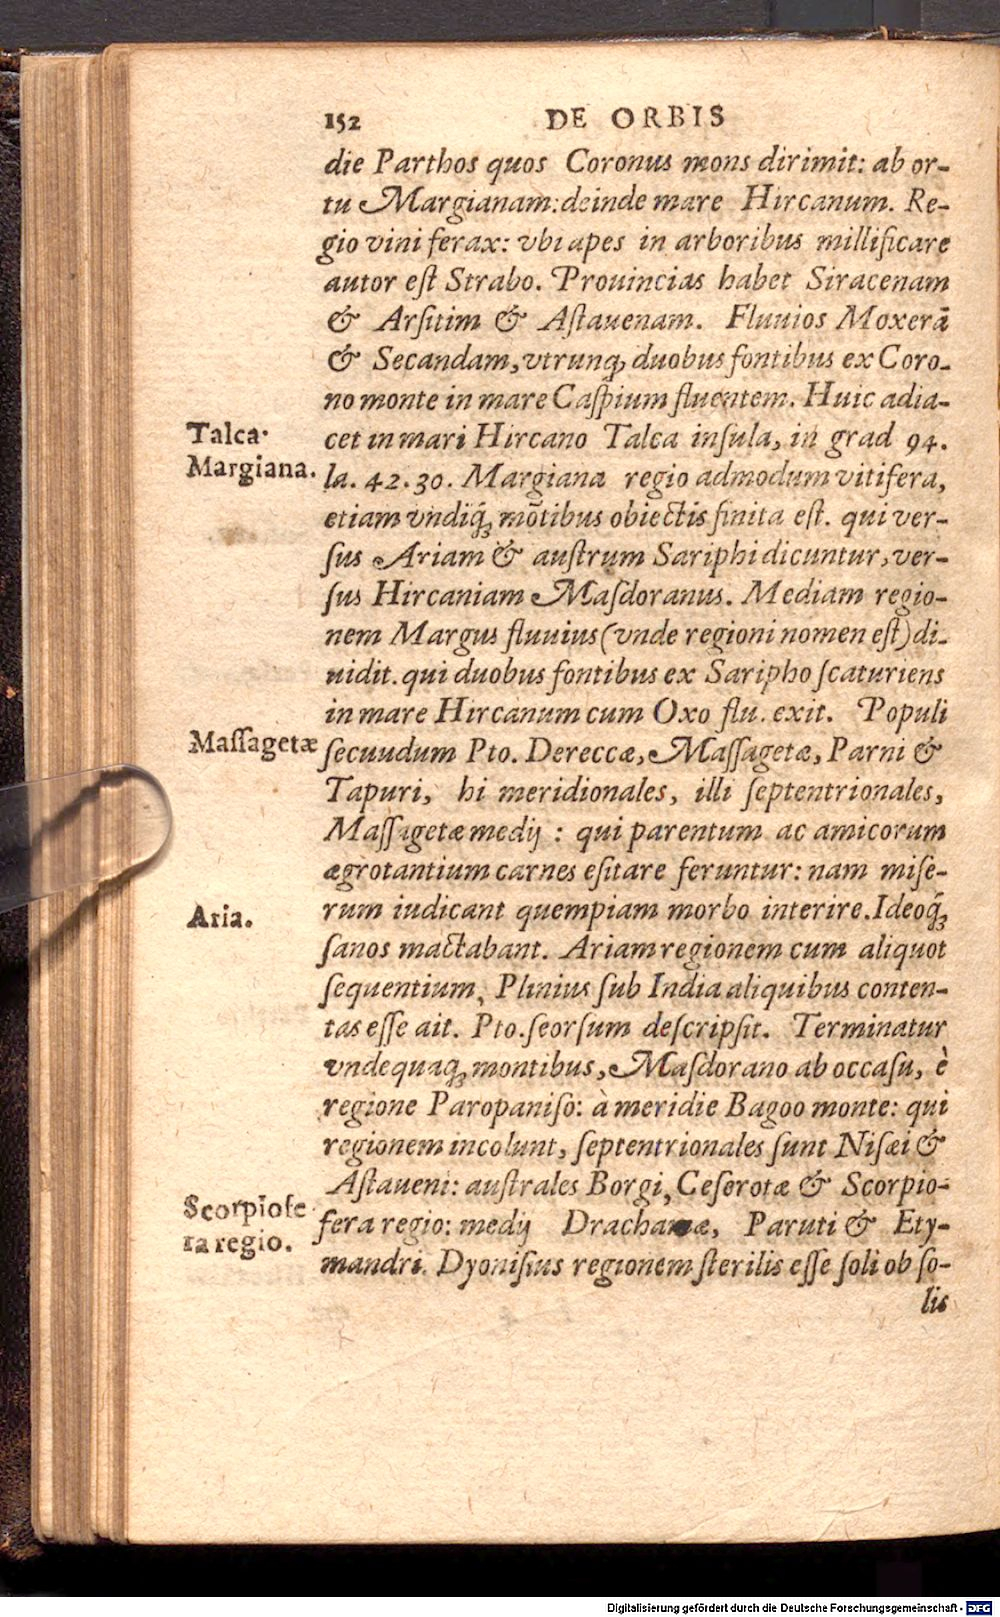 152 DE ORBIS
die Parthos quos Coronus mons dirimit: ab or-
tu Margianam: deinde mare Hircanum. Re-
gio vini ferax: vbi apes in arboribus millificare
autor eſt Strabo. Prouincias habet Siracenam
& Arſitim & Aſtauenam. Fluuios Moxerā
& Secandam, vtrunq; duobus fontibus ex Coro-
no monte in mare Caſpium fluentem. Huic adia-
Talca.
cet in mari Hircano Talca inſula, in grad 94.
Margiana.
la. 42.30. Margiana regio admodum vitifera,
etiam vndiq; mōtibus obiectis finita eſt. qui ver-
ſus Ariam & auſtrum Sariphi dicuntur, ver-
ſus Hircaniam Maſdoranus. Mediam regio-
nem Margus fluuius (vnde regioni nomen eſt) di-
uidit. qui duobus fontibus ex Saripho ſcaturiens
in mare Hircanum cum Oxo flu. exit. Populi
Maſſagetæ
ſecuudum Pto. Dereccæ, Maſſagetæ, Parni &
Tapuri, hi meridionales, illi ſeptentrionales,
Maſſagetæ medij : qui parentum ac amicorum
ægrotantium carnes eſitare feruntur: nam miſe-
Aria.
rum iudicant quempiam morbo interire. Ideoq;
ſanos mactabant. Ariam regionem cum aliquot
ſequentium, Plinius ſub India aliquibus conten-
tas eſſe ait. Pto. ſeorſum deſcripſit. Terminatur
vndequaq; montibus, Maſdorano ab occaſu, è
regione Paropaniſo: à meridie Bagoo monte: qui
regionem incolunt, ſeptentrionales ſunt Niſæi &
Aſtaueni: auſtrales Borgi, Ceſerotæ & Scorpio-
Scorpiofe
fera regio: medij Paruti & Ety-
ra regio.
mandri. Dyoniſius regionem ſterilis eſſe ſoli ob ſo-
lis
Digitalisierung gefördert durch die Deutsche Forschungsgemeinschaft - DFG